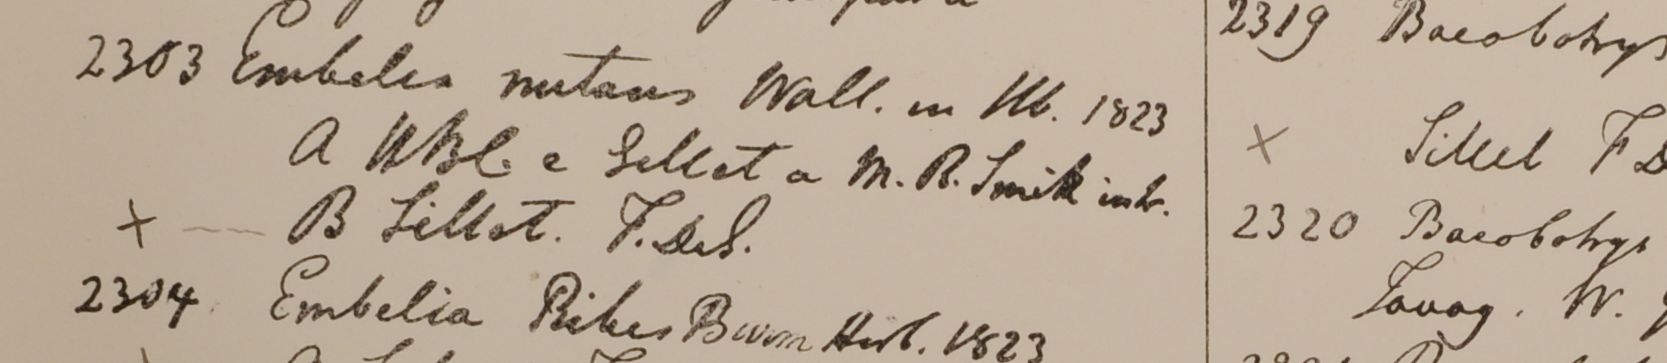 2303 Embelia nutans Wall. in Hb. 1823
A HBC. e Sillet a M. R. Smith
+ — B Sillet. F. De S.
2304 Embelia Ribes Burm Herb. 1823
2319 Baeobotrys
× Sillet F D
2320 Baeobotrys
Tavoy. W.